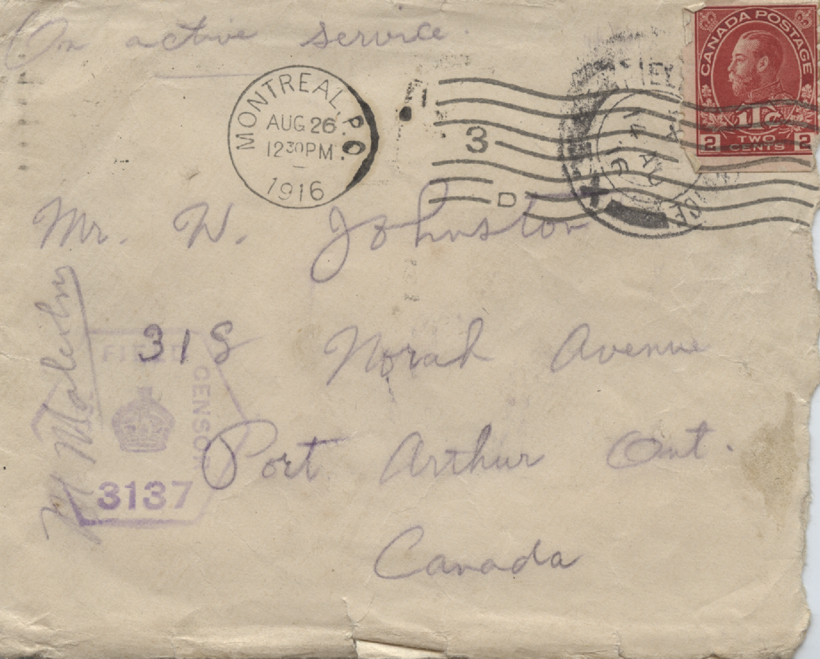 On active service
MONTREAL, P.Q
AUG 26
12 30 PM.
1916
3
D
CANADA POSTAGE
1Tc
2 TWO CENTS 2
Mr. W. Johnston
318 Norah Avenue
Port Arthur Ont.
Canada
Malcolm
FIELD CENSOR
3137